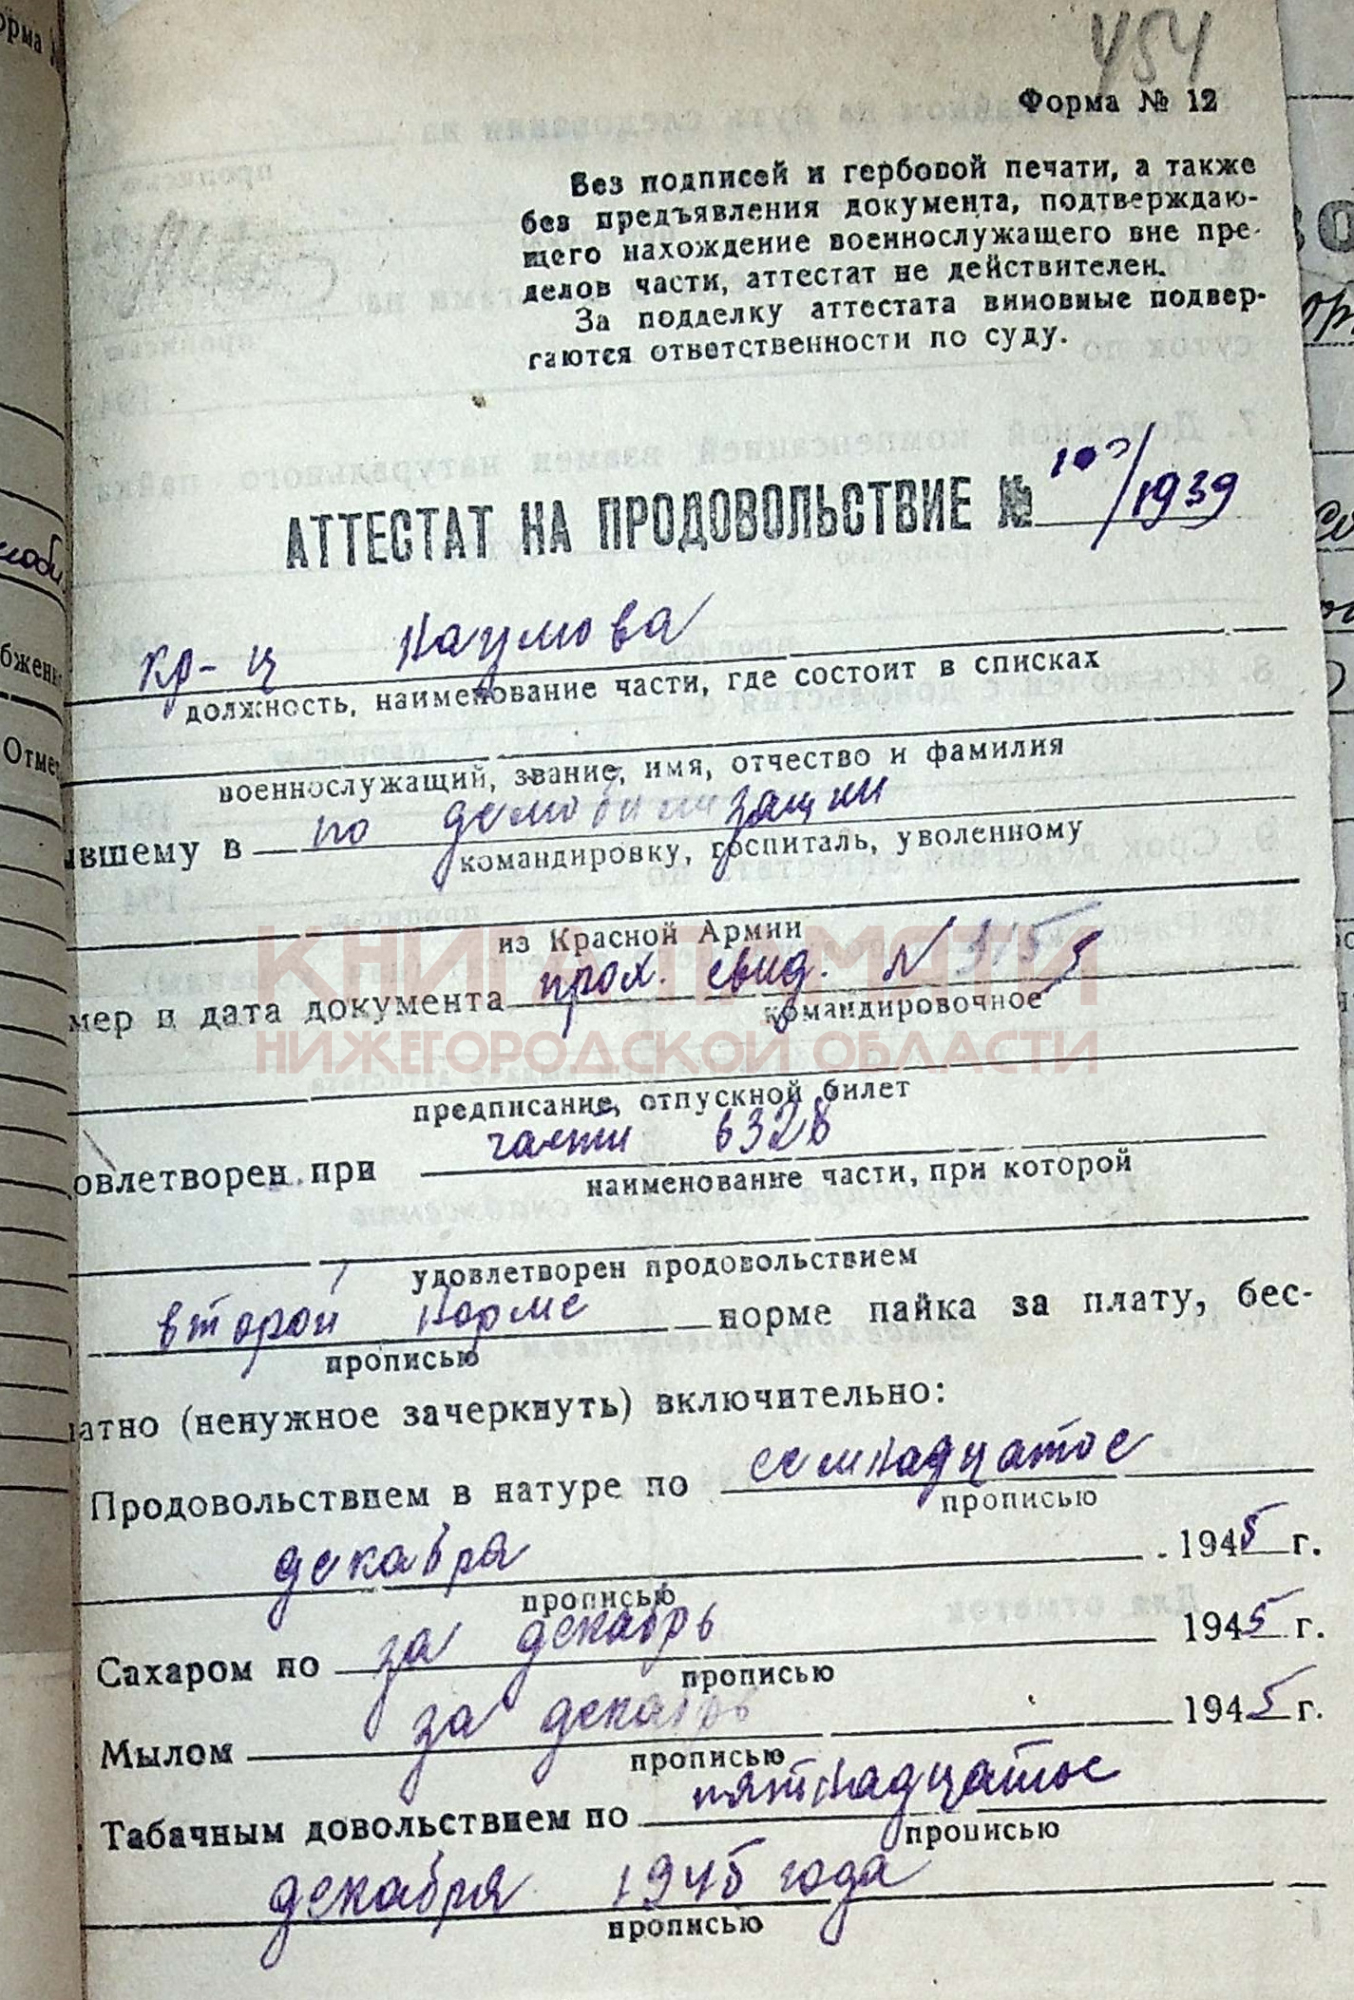 454
Форма № 12
Без подписей и гербовой печати, а также
без предъявления документа, подтверждаю-
щего нахождение военнослужащего вне пре-
делов части, аттестат не действителен.
За подделку аттестата виновные подвер-
гаются ответственности по суду.
АТТЕСТАТ НА ПРОДОВОЛЬСТВИЕ № /1939
кр-ц Наумова
должность, наименование части, где состоит в списках
военнослужащий, звание, имя, отчество и фамилия
ывшему в по демобилизации
командировку, госпиталь, уволенному
из Красной Армии
КНИГА ПАМЯТИ
НИЖЕГОРОДСКОЙ ОБЛАСТИ
мер и дата документа прох. свид. N
командировочное
предписание, отпускной билет
овлетворен при части 6328
наименование части, при которой
удовлетворен продовольствием
второй норме норме пайка за плату, бес-
прописью
латно (ненужное зачеркнуть) включительно:
Продовольствием в натуре по семнадцатое
прописью
декабря 1945 г.
прописью
Сахаром по за декабрь 1945 г.
прописью
Мылом за декабрь 1945 г.
прописью
Табачным довольствием по пятнадцатое
прописью
декабря 1945 года
прописью